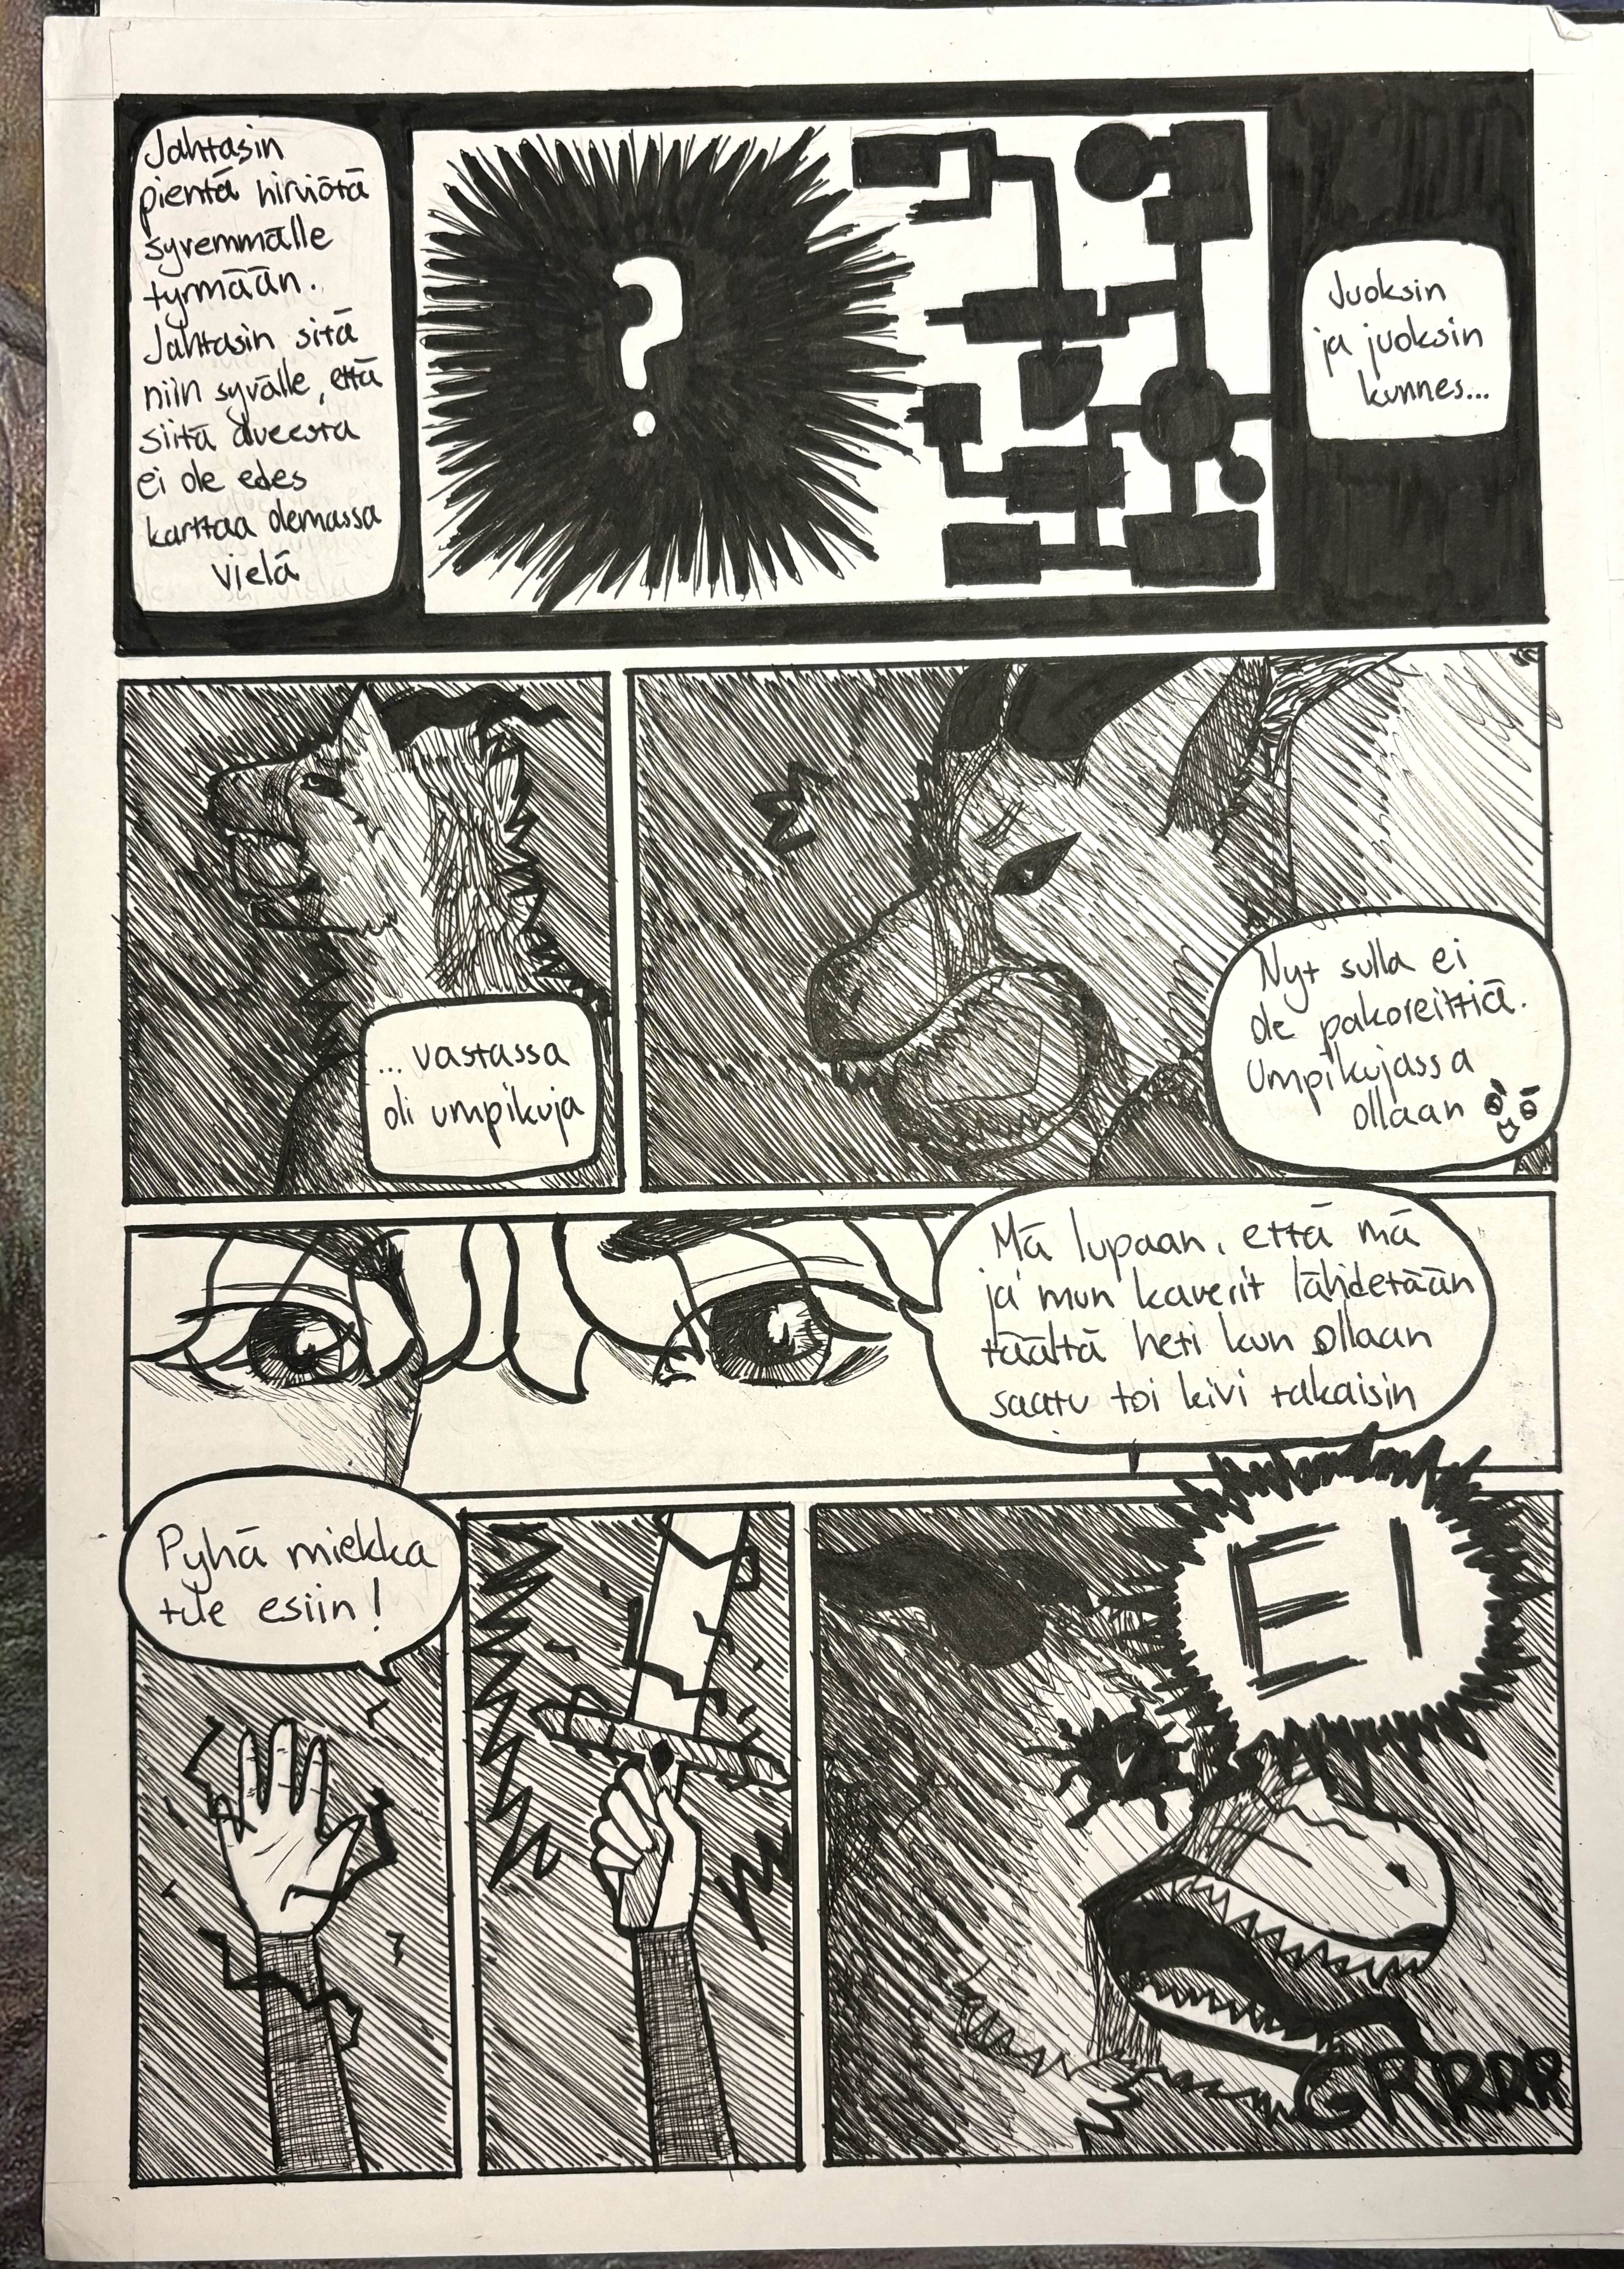 Jahtasin
pientä hirviötä
syvemmälle
tyrmään.
Jahtasin sitä
niin syvälle, että
siitä alueesta
ei ole edes
karttaa olemassa
vielä
?
Juoksin
ja juoksin
kunnes...
... vastassa
oli umpikuja
Nyt sulla ei
ole pakoreittiä.
Umpikujassa
ollaan
Mä lupaan, että mä
ja mun kaverit lähdetään
täältä heti kun ollaan
saatu toi kivi takaisin
Pyhä miekka
tule esiin!
EI
GRRRRR